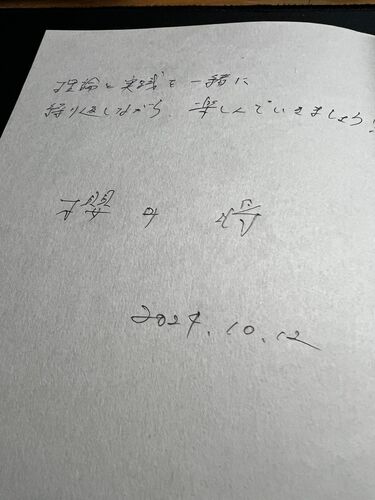 理論と実践を一緒に
繰り返しながら、楽しんでいきましょう!
櫻井
2024.10.12